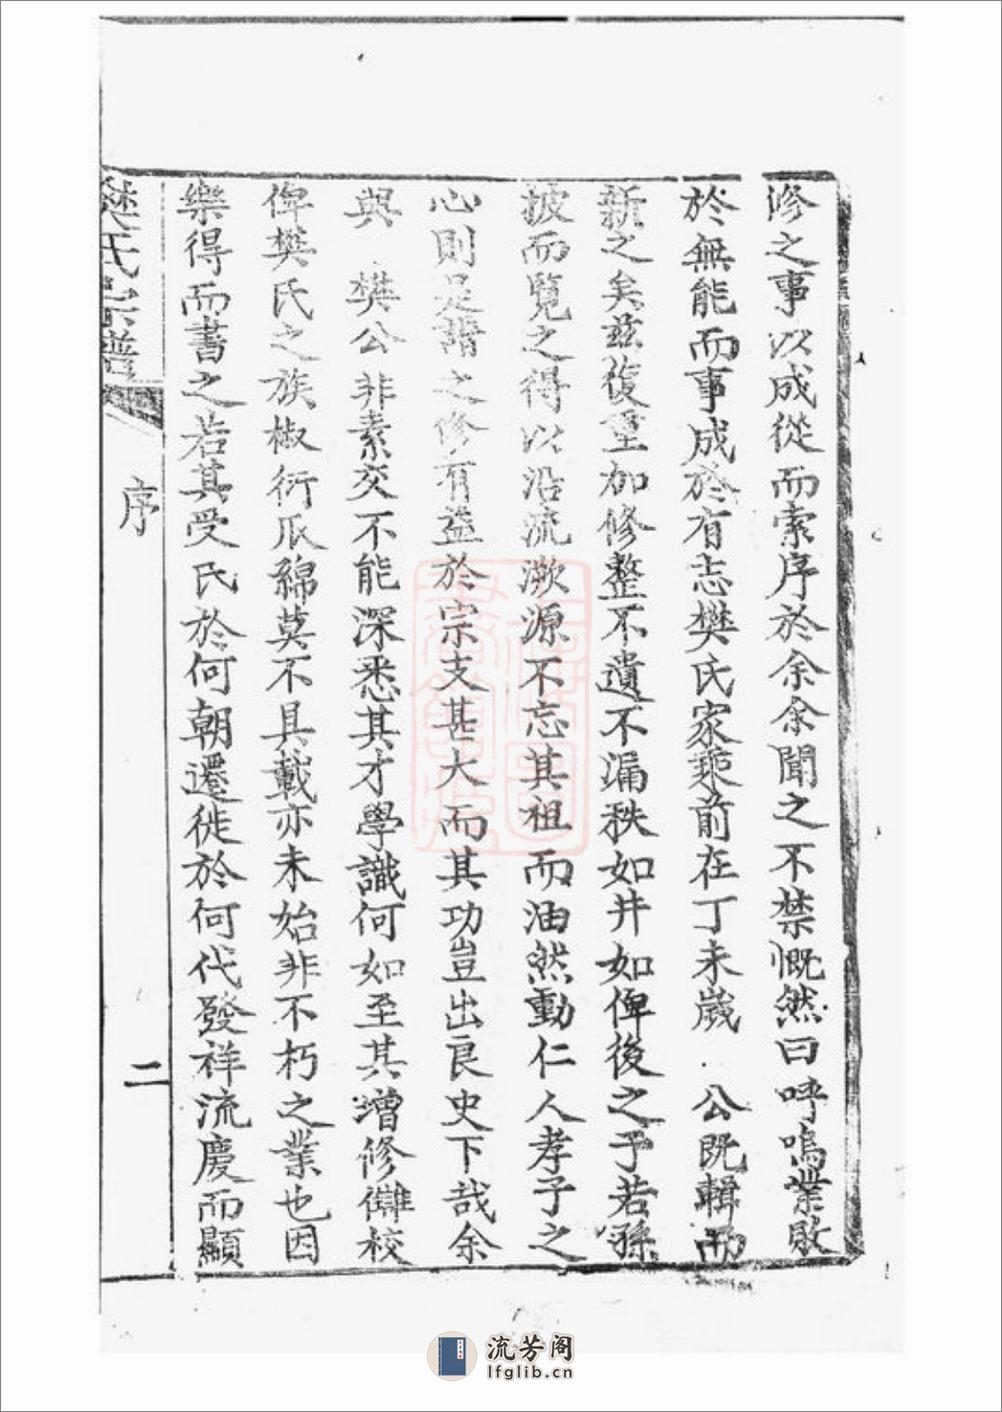 修之事以成從而索序於余余聞之不禁慨然曰呼嗚業敗
於無能而事成於有志樊氏家乘前在丁未歲 公既輯而
新之矣兹復重加修整不遺不漏秩如井如俾後之子若孫
披而覽之得以沿流溯源不忘其祖而油然動仁人孝子之
心則是譜之修有益於宗支甚大而其功豈出良史下哉余
與 樊公非素交不能深悉其才學識何如至其增修讎校
俾樊氏之族椒衍瓜綿莫不具載亦未始非不朽之業也因
樂得而書之若其受氏於何朝遷徙於何代發祥流慶而顯
樊氏宗譜 序 二
流芳阁
lfglib.cn